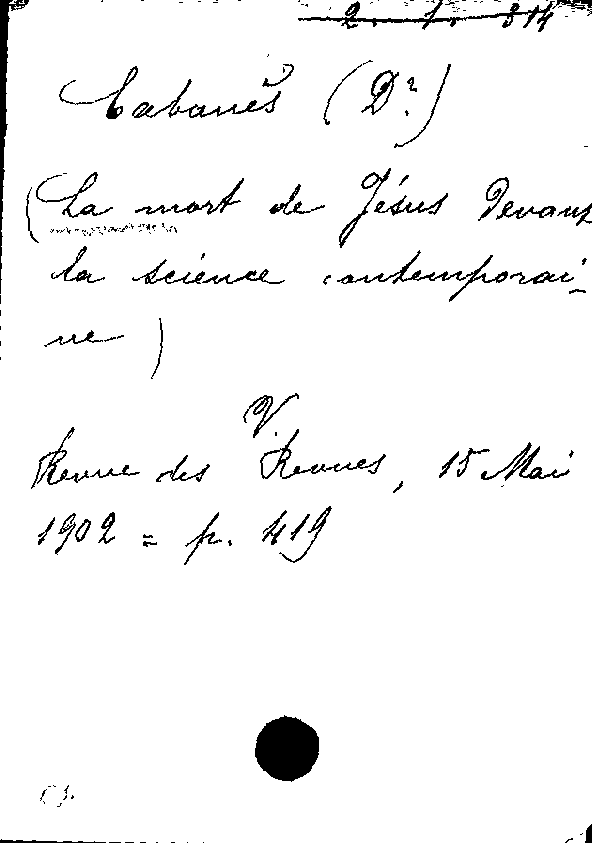 2. 1. 314
Cabanès (Dr.)
(La mort de Jésus devant
la science contemporai-
ne)
V.
Revue des Revues, 15 Mai
1902 = p. 419